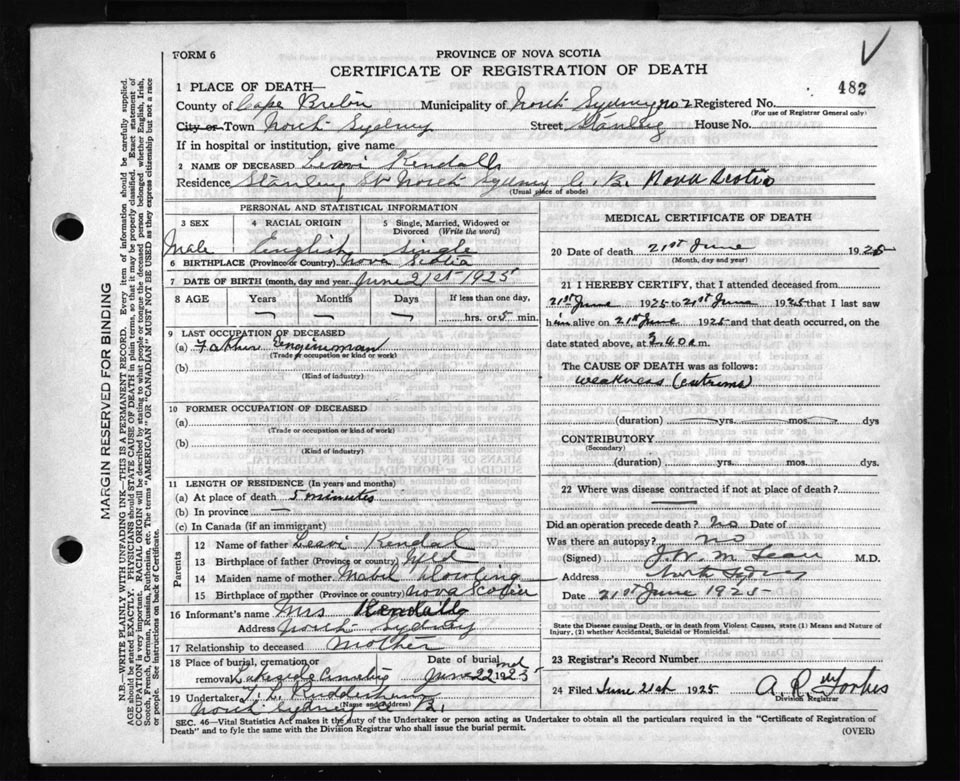 FORM 6
PROVINCE OF NOVA SCOTIA
CERTIFICATE OF REGISTRATION OF DEATH
482
1 PLACE OF DEATH—
County of Cape Breton Municipality of North Sydney no 2 Registered No.
(For use of Registrar General only)
City or Town North Sydney Street Stanley House No.
If in hospital or institution, give name
2 NAME OF DECEASED Leavi Kendall
Residence Stanley St North Sydney C. B. Nova Scotia
(Usual place of abode)
PERSONAL AND STATISTICAL INFORMATION
3 SEX 4 RACIAL ORIGIN 5 Single, Married, Widowed or Divorced (Write the word)
Male English single
6 BIRTHPLACE (Province or Country) Nova Scotia
7 DATE OF BIRTH (month, day and year) June 21st 1925
8 AGE Years Months Days If less than one day,
— — — hrs. or 5 min.
9 LAST OCCUPATION OF DECEASED
(a) Father Engineman
(Trade or occupation or kind of work)
(b)
(Kind of industry)
10 FORMER OCCUPATION OF DECEASED
(a)
(Trade or occupation or kind of work)
(b)
(Kind of industry)
11 LENGTH OF RESIDENCE (In years and months)
(a) At place of death 5 minutes
(b) In province —
(c) In Canada (if an immigrant)
Parents
12 Name of father Leavi Kendal
13 Birthplace of father (Province or country) Nfld
14 Maiden name of mother Mabel
15 Birthplace of mother (Province or country) Nova Scotia
16 Informant's name Mrs Kendall
Address North Sydney
17 Relationship to deceased Mother
18 Place of burial, cremation or removal Lakeside Date of burial June 22nd 1925
19 Undertaker
(Name and Address)
North Sydney C. B.
MEDICAL CERTIFICATE OF DEATH
20 Date of death 21st June 1925
(Month, day and year)
21 I HEREBY CERTIFY, that I attended deceased from
21st June 1925 to 21st June 1925 that I last saw
him alive on 21st June 1925 and that death occurred, on the
date stated above, at 3.40 a m.
The CAUSE OF DEATH was as follows:
weakness
(duration) yrs. mos. dys
CONTRIBUTORY
(Secondary)
(duration) yrs. mos. dys.
22 Where was disease contracted if not at place of death?
Did an operation precede death? No Date of
Was there an autopsy? No
(Signed) M.D.
Address North Sydney
Date 21st June 1925
State the Disease causing Death, or in death from Violent Causes, state (1) Means and Nature of
Injury, (2) whether Accidental, Suicidal or Homicidal.
23 Registrar's Record Number
24 Filed June 21st 1925 A. R. Forbes
Division Registrar
SEC. 46—Vital Statistics Act makes it the duty of the Undertaker or person acting as Undertaker to obtain all the particulars required in the "Certificate of Registration of
Death" and to fyle the same with the Division Registrar who shall issue the burial permit. (OVER)
MARGIN RESERVED FOR BINDING
N.B.—WRITE PLAINLY WITH UNFADING INK—THIS IS A PERMANENT RECORD. Every item of information should be carefully supplied.
AGE should be stated EXACTLY. PHYSICIANS should STATE CAUSE OF DEATH in plain terms, so that it may be properly classified. Exact statement of
OCCUPATION is very important. RACIAL ORIGIN will be described by stating to what people or tongue the deceased person belonged whether English, Irish,
Scotch, French, German, Russian, Ruthenian, etc. The terms "AMERICAN" OR "CANADIAN" MUST NOT BE USED as they express citizenship but not a race
or people. See instructions on back of Certificate.